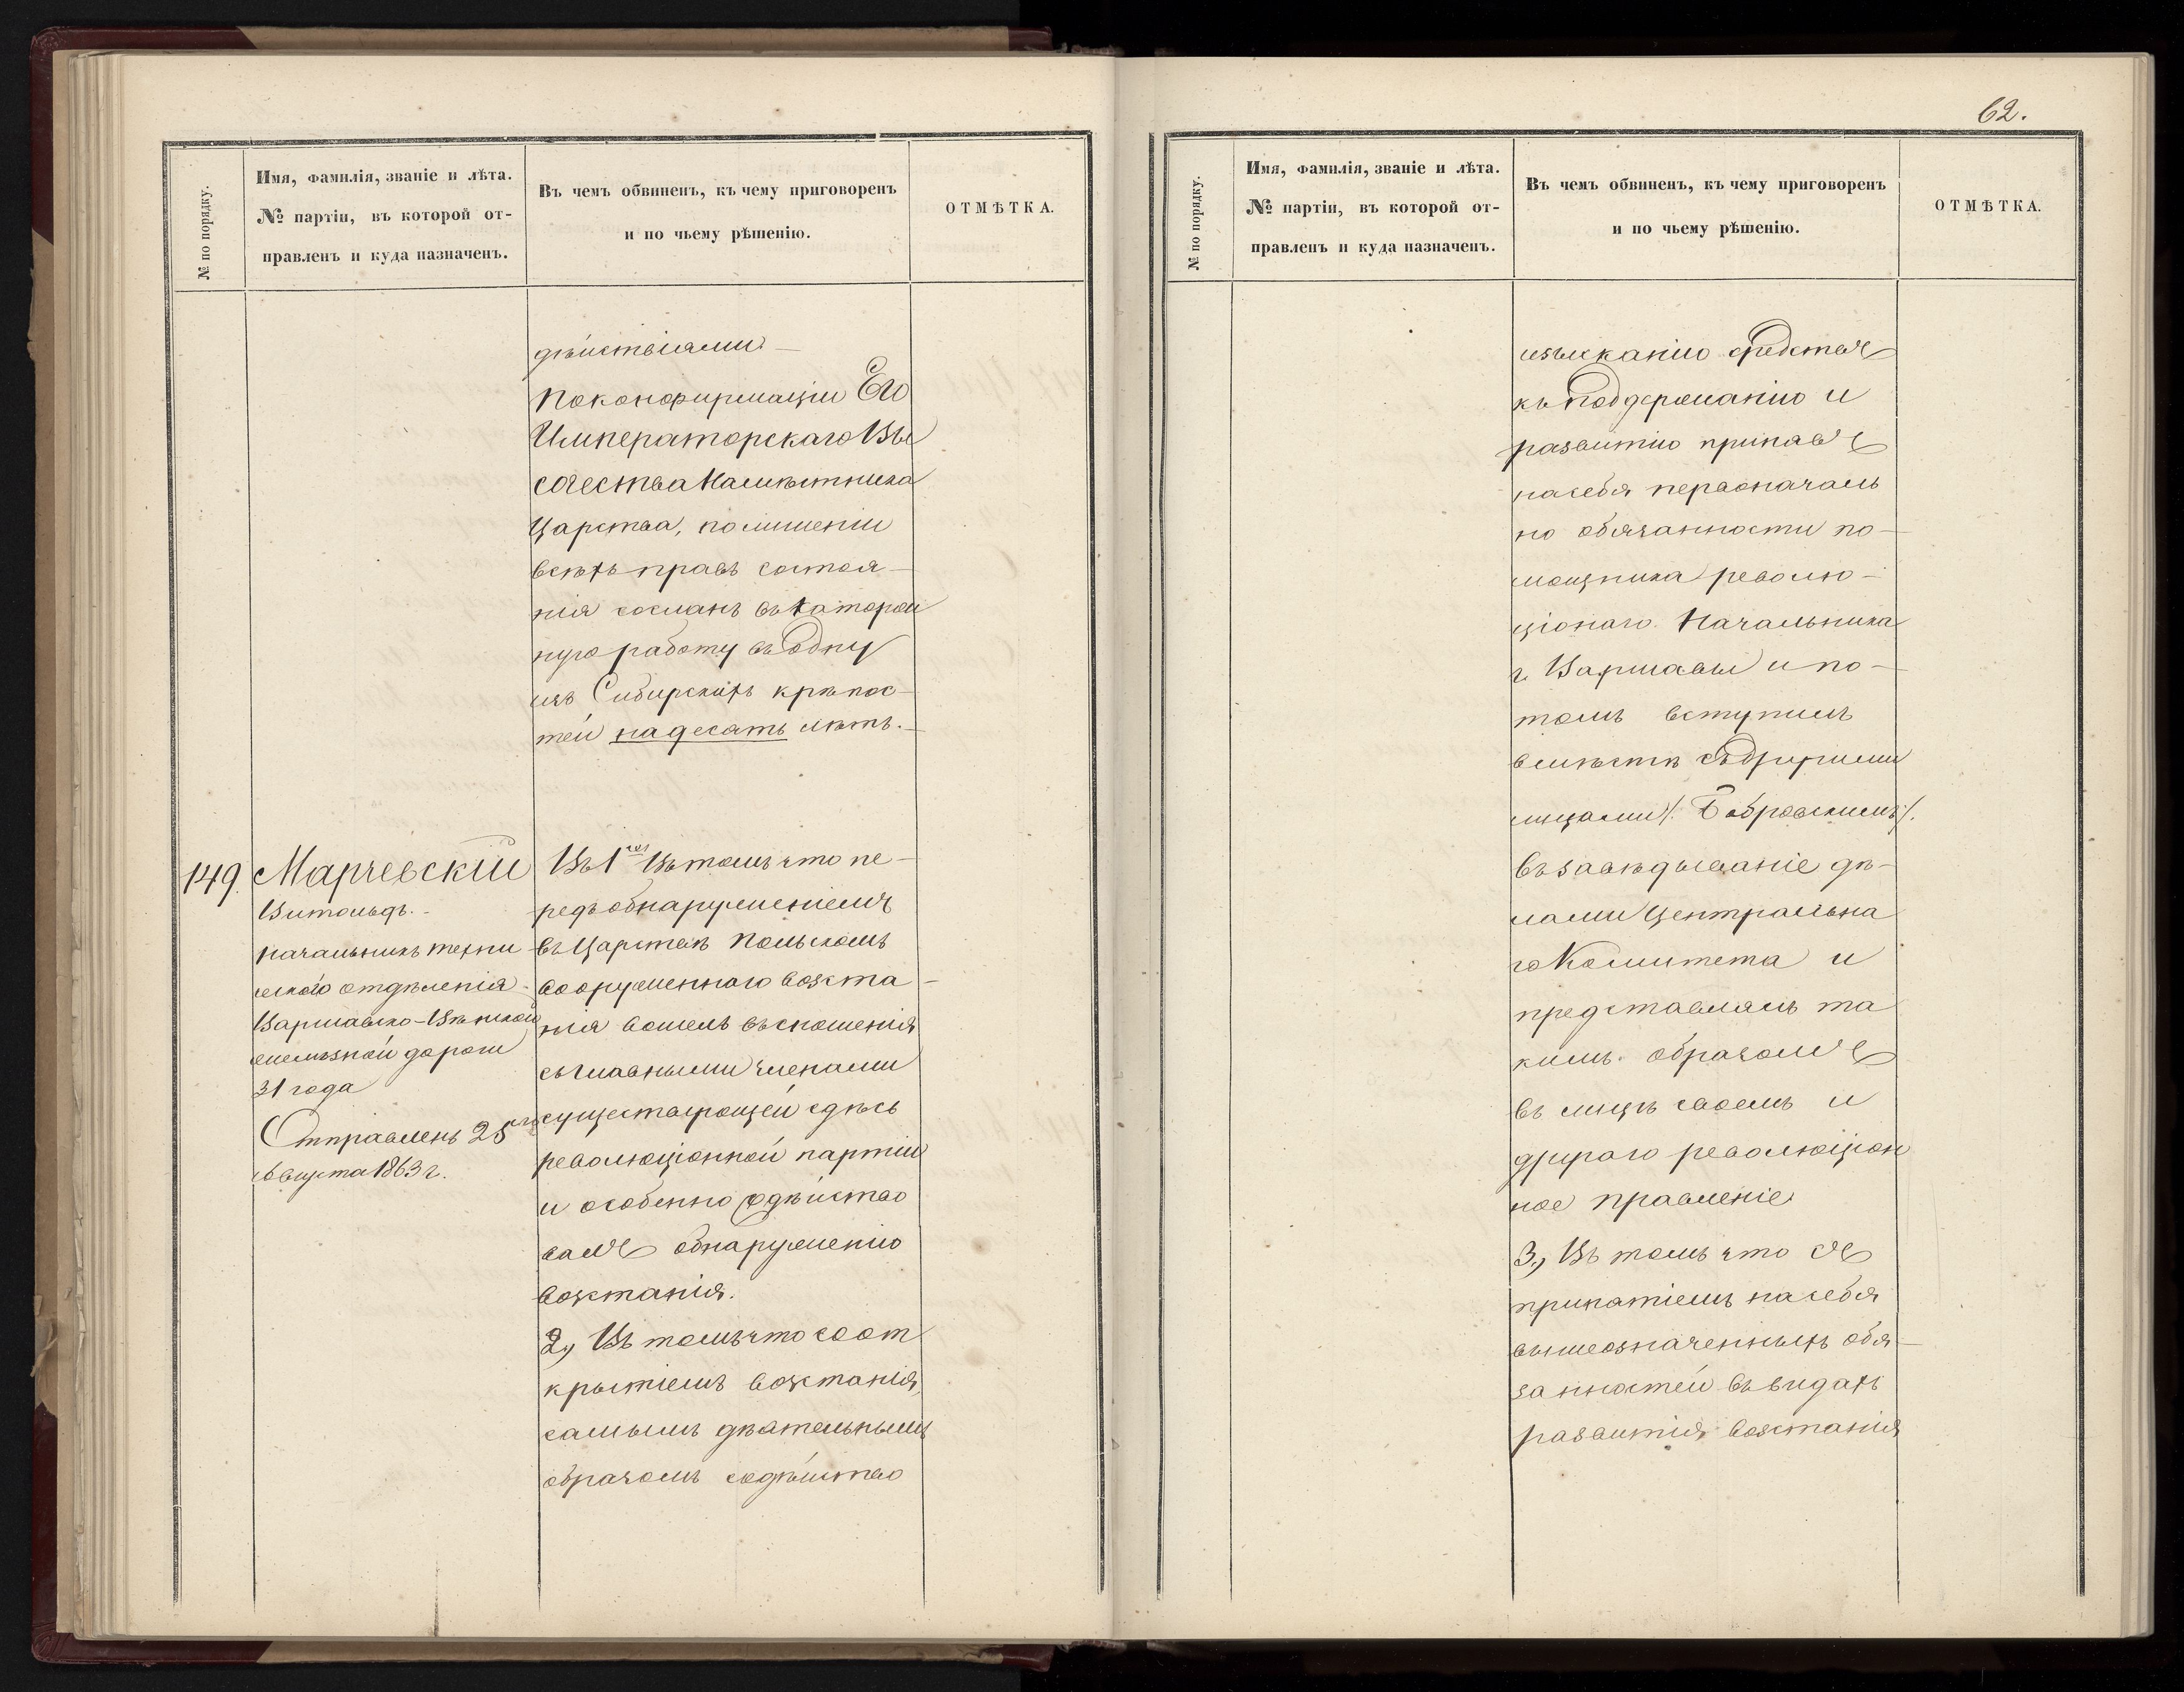 № по порядку.
Имя, Фамилія, званіе и лѣта.
№ партіи, въ которой от-
правленъ и куда назначенъ.
Въ чемъ обвиненъ, къ чему приговоренъ
и по чьему рѣшенію.
ОТМѢТКА.
дѣйствіями —
По конфирмаціи Его
Императорскаго Вы
сочества Намѣстника
Царства, по лишеніи
всѣхъ правъ состоя-
нія сосланъ въ каторж
ную работу въ одну
изъ Сибирскихъ крѣпос-
тей на десать лѣтъ. —
149. Марчевскій
Витольдъ. -
начальникъ техни
ческаго отдѣленія
Варшавско-Вѣнской
желѣзной дороги
31 года
Отправленъ 25го
Августа 1863 г.
Въ 1хъ Въ томъ что пе-
редъ обнаруженіемъ
въ Царствѣ Польскомъ
вооруженнаго возста-
нія вошелъ въ сношенія
съ главными членами
существующей здѣсь
революціонной партіи
и особенно содѣйство
валъ обнаруженію
возстанія.
2, Въ томъ что со от
крытіемъ возстанія,
самымъ дѣательнымъ
образомъ содѣйство
62.
№ по порядку.
Имя, Фамилія, званіе и лѣта.
№ партіи, въ которой от-
правленъ и куда назначенъ.
Въ чемъ обвиненъ, къ чему приговоренъ
и по чьему рѣшенію.
ОТМѢТКА.
изысканію средствъ
къ поддержанію и
развитію принавъ
на себя первоначаль
но обязанности по-
мощника револю-
ціонаго Начальника
г. Варшавы и по-
томъ вступилъ
вмѣстѣ съ другими
лицами /. Бобровскимъ /.
въ завѣдываніе дѣ-
лами Центральна
го Комитета и
представлялъ та
кимъ образомъ
въ лицѣ своемъ и
другаго революціон
ное правленіе
3, Въ томъ что съ
принатіемъ на себя
вышеозначенныхъ обя-
занностей въ видахъ
развитія возстанія